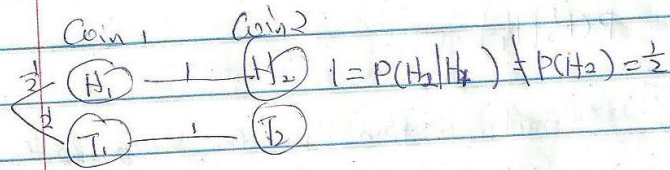 Coin 1 Coin 2
1/2 H₁ 1 H₂ 1 = P(H₂|H₁) ≠ P(H₂) = 1/2
1/2 T₁ 1 T₂